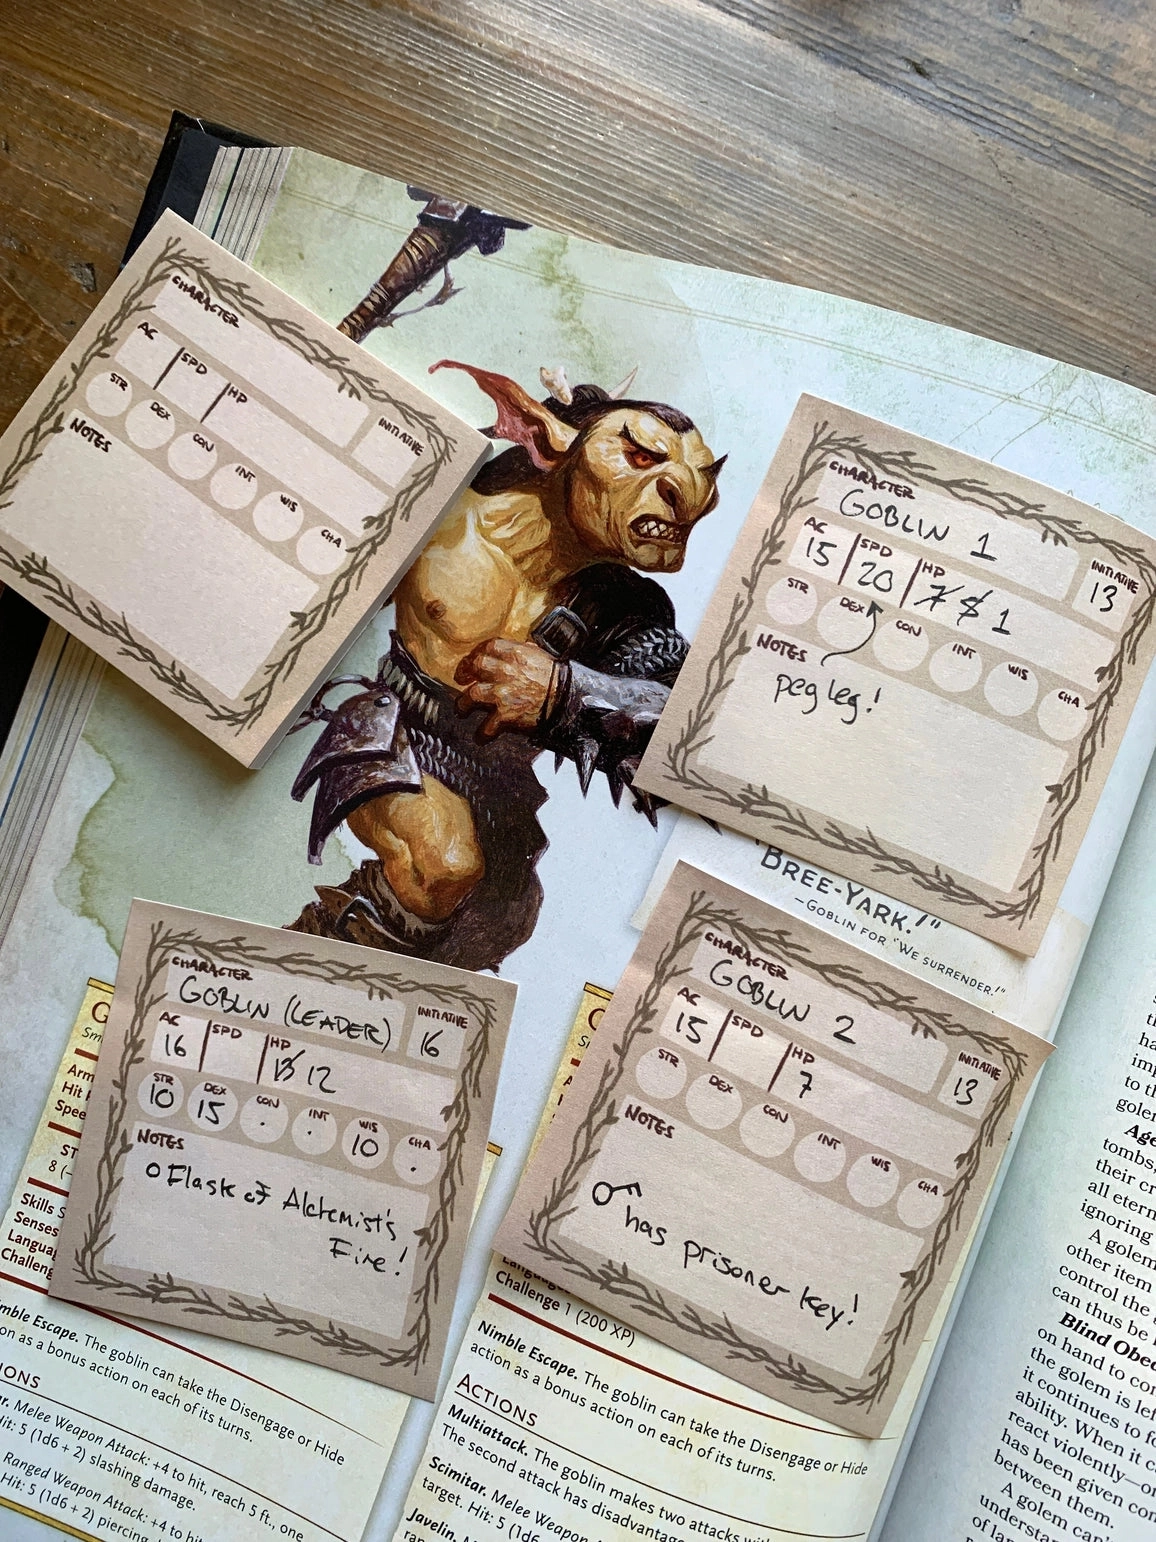 CHARACTER
INITIATIVE
AC
SPD
HP
STR
DEX
CON
INT
WIS
CHA
NOTES
CHARACTER
GOBLIN 1
INITIATIVE
13
AC
15
SPD
20
HP
7 8 1
STR
DEX
CON
INT
WIS
CHA
NOTES
peg leg!
"BREE-YARK!"
—GOBLIN FOR "WE SURRENDER!"
CHARACTER
GOBLIN (LEADER)
INITIATIVE
16
AC
16
SPD
HP
13 12
STR
10
DEX
15
CON
INT
WIS
10
CHA
NOTES
Flask of Alchemist's
Fire!
CHARACTER
GOBLIN 2
INITIATIVE
13
AC
15
SPD
HP
7
STR
DEX
CON
INT
WIS
CHA
NOTES
has prisoner key!
Hit
Skills
Senses
Escape. The goblin can take the Disengage or Hide
on as a bonus action on each of its turns.
Melee Weapon Attack: +4 to hit, reach 5 ft., one
Hit: 5 (1d6 + 2) slashing damage.
Ranged Weapon Attack: +4 to hit
Hit: 5 (1d6 + 2) piercing
Challenge 1 (200 XP)
Nimble Escape. The goblin can take the Disengage or Hide
action as a bonus action on each of its turns.
ACTIONS
Multiattack. The goblin makes two attacks
The second attack has disadvantage
Scimitar. Melee Weapon
target. Hit: 5 (1d6
Javelin.
to the
tombs,
their
all
ignoring
A golem
other item
control the
can thus be
Blind
on hand to
the golem is
it continues to
ability. When it
react violently—
has been given
between them.
A golem can't